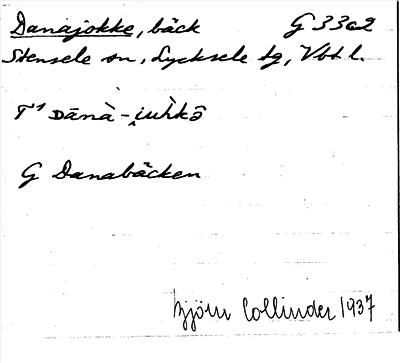 Danajokke, bäck G 33 c2
Stensele sn, Lycksele tg, Vbt l.
T¹ Dānà-i̯ùh̀kō̂
G Danabäcken
Björn Collinder 1937